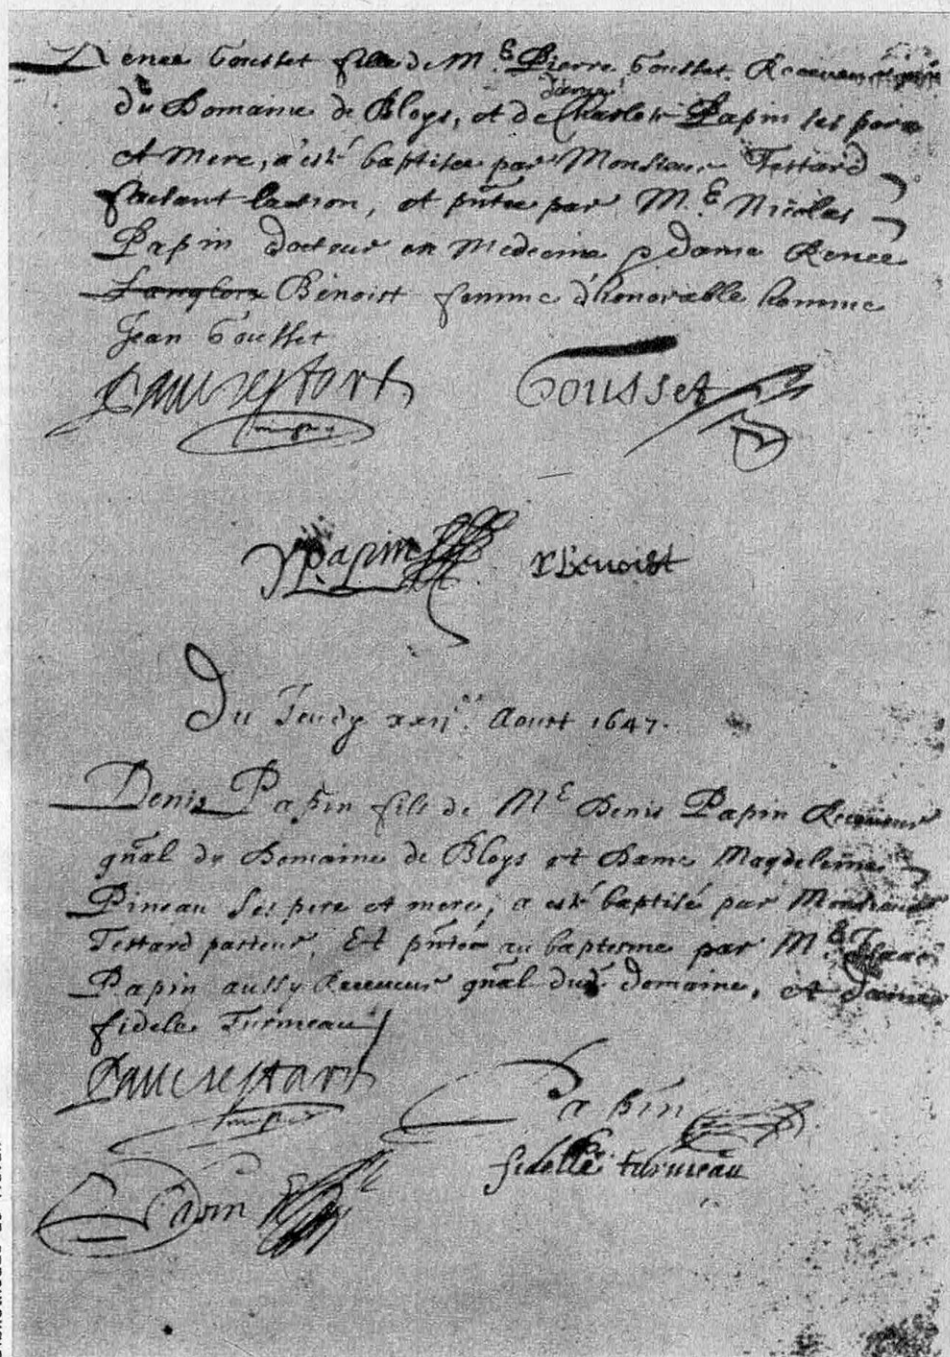 Renee Gousset fille de M.e Pierre Gousset. Receveur
dame
du Domaine de Bloys, et de Charlote Papin ses pere
et mere, a esté baptisee par Monsieur Testard
faisant laction, et pñtee par M.e Nicolas
Papin docteur en Medecine & dame Renee
Langlois Benoist femme d'honorable homme
Jean Gousset
Paul Testard Gousset
NPapin r Benoist
Du Jeudy xxij.e Aoust 1647.
Denis Papin fils de M.e Denis Papin Receveur
gñal du Domaine de Bloys et Dame Magdeleine
Pineau ses pere et mere, a esté baptisé par Monsieur
Testard pasteur, Et pñté au baptesme par M.e Isaac
Papin aussy Receveur gñal dud. domaine, et dame
fidele Turmeau
Paul Testard Papin
fidelle turmeau
Papin